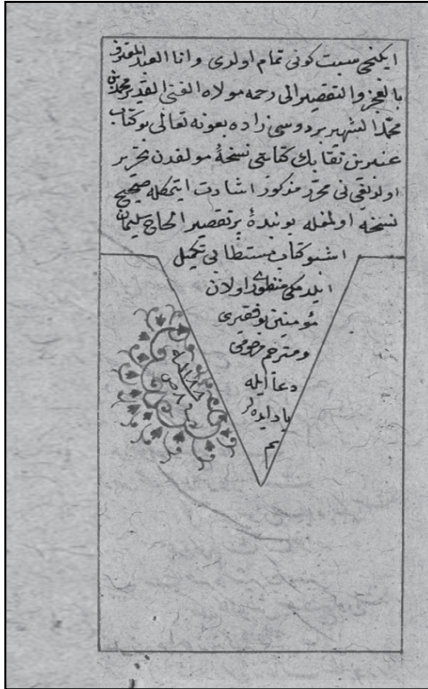 ایكنجی سبت كونی تمام اولدی و انا العبد المعترف
بالعجز والتقصیر الی رحمه مولاه الغنی القدیر محمد بن
محمد الشهیر بردوسی زاده بعونه تعالی بو كتاب
كتابتی نسخهٔ مولفدن تحریر
اولندیغی محرر مذكور اشارت ایتمكله صحیح
نسخه اولمغله بو بندهٔ پر تقصیر الحاج سلیمان
اشبو كتاب مستطابی تكمیل
ایلدم كه منظوری اولان
مؤمنین بو فقیری
و مترجم مرحومی
دعا ایله
یاد ایده لر
م